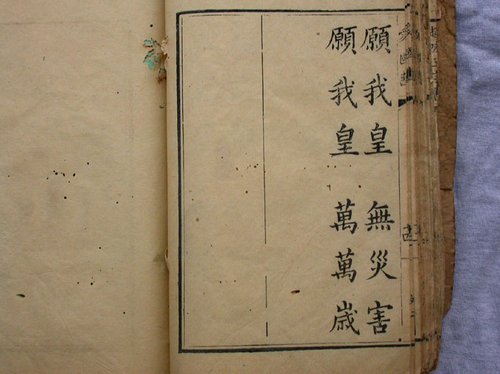 願我皇無災害
願我皇萬萬歲